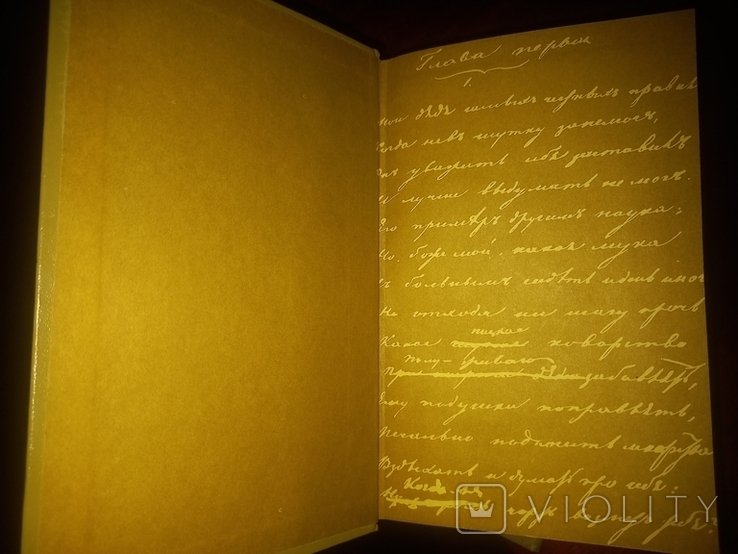 Глава первая
1.
Мой дядя самыхъ честныхъ правилъ
Когда не въ шутку занемогъ,
Онъ уважать себя заставилъ
И лучше выдумать не могъ.
Его примѣръ другимъ наука;
Но, боже мой, какая мука
Съ больнымъ сидѣть и день и ночь
Не отходя ни шагу прочь
низкое
Какое коварство
Полу-живаго
забавлять,
Ему подушки поправлять,
Печально подносить лекарство
Вздыхать и думать про себя:
Когда
чортъ возьметъ тебя?
VIOLITY